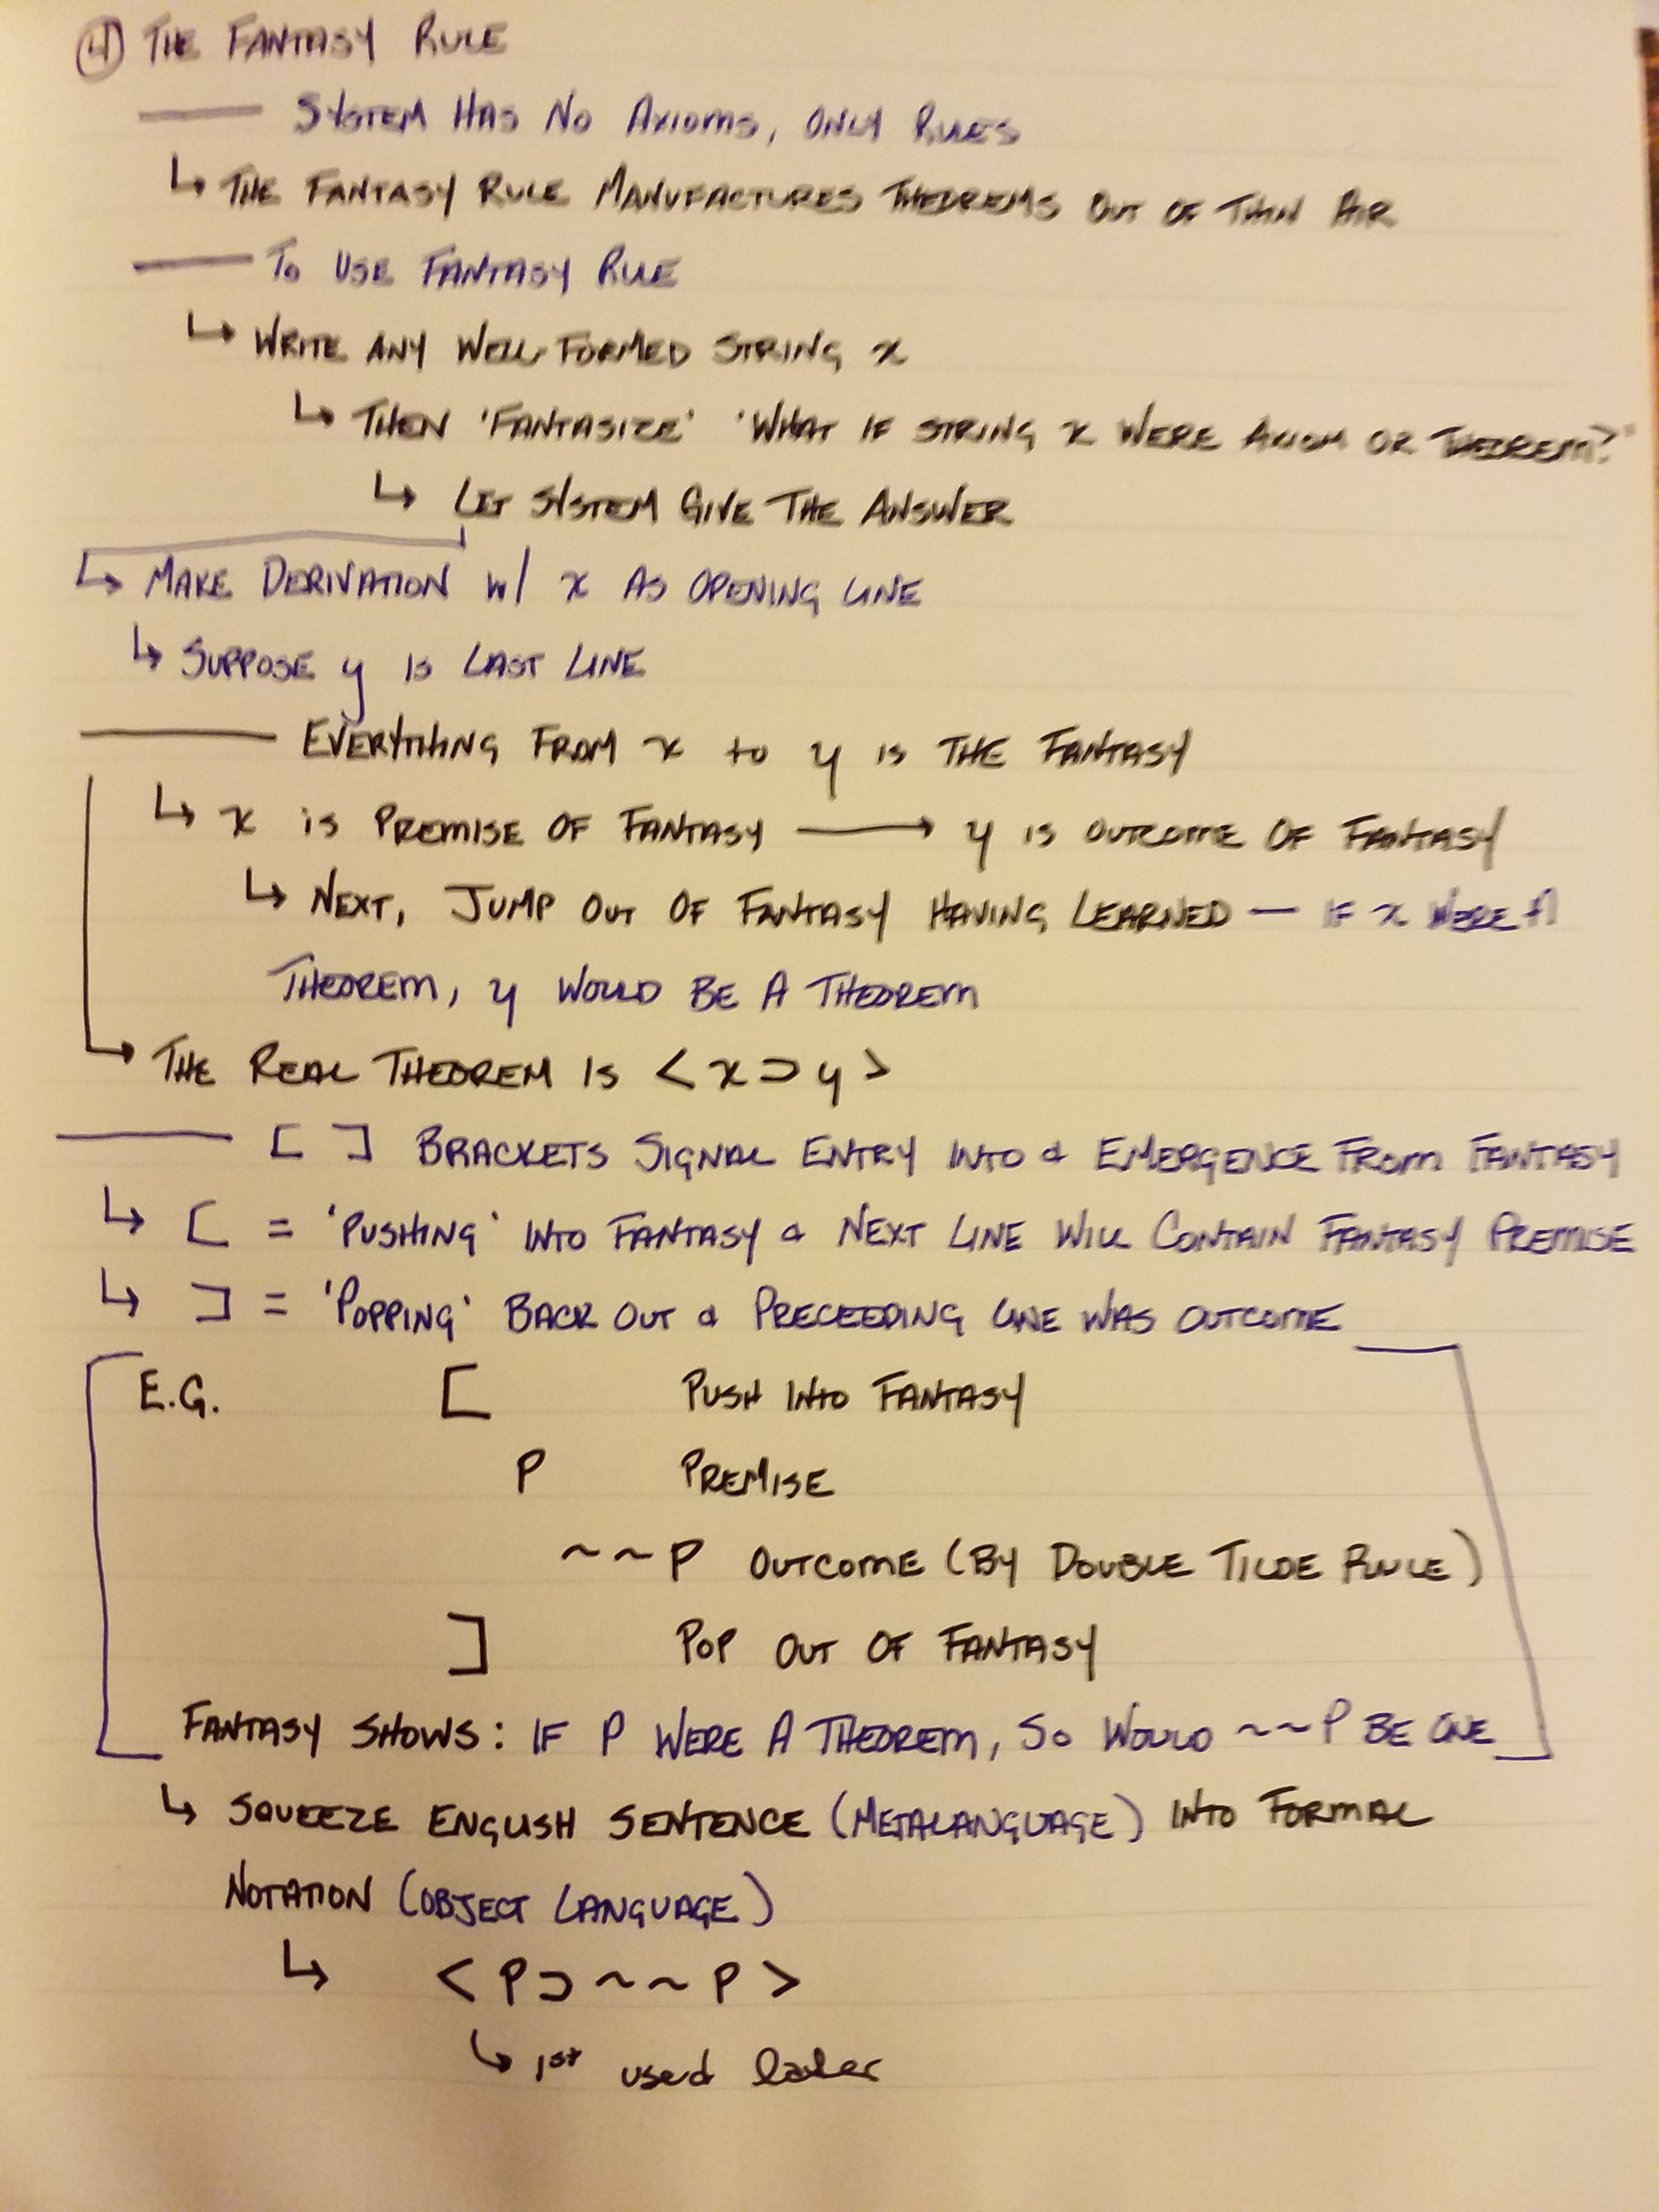 ④ THE FANTASY RULE
— SYSTEM HAS NO AXIOMS, ONLY RULES
↳ THE FANTASY RULE MANUFACTURES THEOREMS OUT OF THIN AIR
— TO USE FANTASY RULE
↳ WRITE ANY WELL-FORMED STRING x
↳ THEN 'FANTASIZE' 'WHAT IF STRING x WERE AXIOM OR THEOREM?'
↳ LET SYSTEM GIVE THE ANSWER
↳ MAKE DERIVATION w/ x AS OPENING LINE
↳ SUPPOSE y IS LAST LINE
— EVERYTHING FROM x to y IS THE FANTASY
↳ x is PREMISE OF FANTASY → y IS OUTCOME OF FANTASY
↳ NEXT, JUMP OUT OF FANTASY HAVING LEARNED — IF x WERE A
THEOREM, y WOULD BE A THEOREM
↳ THE REAL THEOREM IS <x⊃y>
— [ ] BRACKETS SIGNAL ENTRY INTO & EMERGENCE FROM FANTASY
↳ [ = 'PUSHING' INTO FANTASY & NEXT LINE WILL CONTAIN FANTASY PREMISE
↳ ] = 'POPPING' BACK OUT & PRECEEDING LINE WAS OUTCOME
E.G. [ PUSH INTO FANTASY
P PREMISE
~~P OUTCOME (BY DOUBLE TILDE RULE)
] POP OUT OF FANTASY
FANTASY SHOWS: IF P WERE A THEOREM, SO WOULD ~~P BE ONE
↳ SQUEEZE ENGLISH SENTENCE (METALANGUAGE) INTO FORMAL
NOTATION (OBJECT LANGUAGE)
↳ <P⊃~~P>
↳ 1st used later